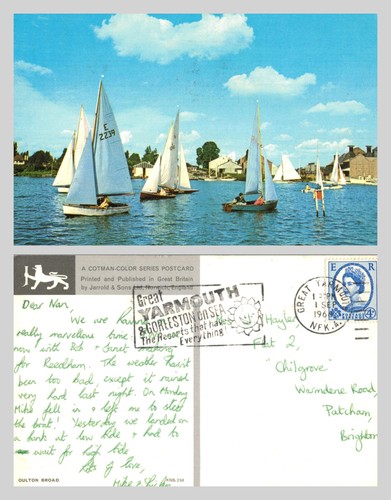 E
2239
A COTMAN-COLOR SERIES POSTCARD
Printed and Published in Great Britain
by Jarrold & Sons Ltd, Norwich, England
Great
YARMOUTH
& GORLESTON ON SEA
The Resorts that have
Everything
GREAT YARMOUTH
1 SEP
1968
NFK.
E R
Dear Nan,
We are having a
really marvellous time
now with Bob & Janet
for Reedham. The weather hasn't
been too bad, except it rained
very hard last night. On Monday
Mike fell in & left me to steer
the boat! Yesterday we landed on
a bank at low tide & had to
wait for high tide.
Lots of love,
Mike &
Hayler
Flat 2,
"Chilgrove"
Warmdene Road,
Patcham,
Brighton
OULTON BROAD